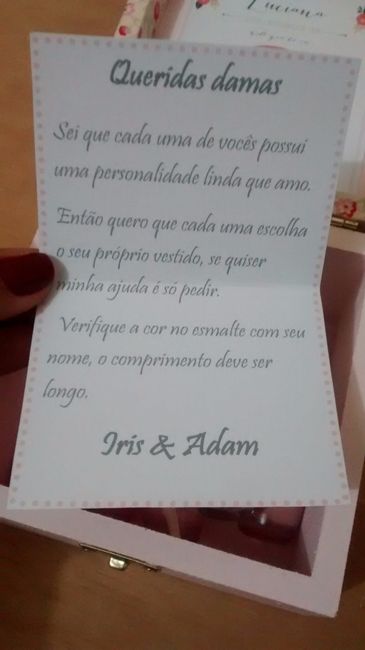 Luciana
Queridas damas
Sei que cada uma de vocês possui
uma personalidade linda que amo.
Então quero que cada uma escolha
o seu próprio vestido, se quiser
minha ajuda é só pedir.
Verifique a cor no esmalte com seu
nome, o comprimento deve ser
longo.
Iris & Adam